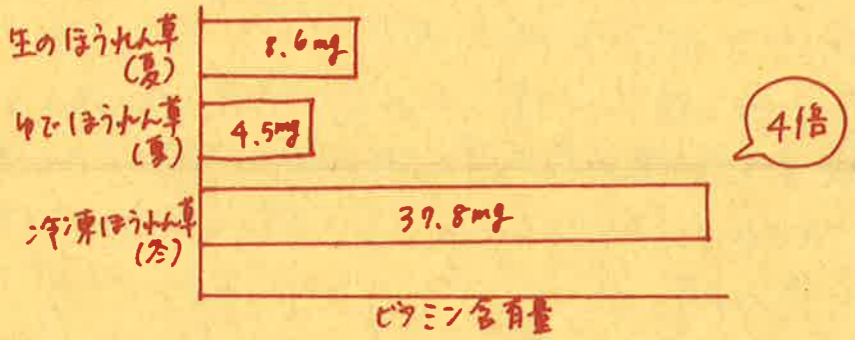 生のほうれん草
(夏)
8.6mg
ゆでほうれん草
(夏)
4.5mg
4倍
冷凍ほうれん草
(冬)
37.8mg
ビタミン含有量